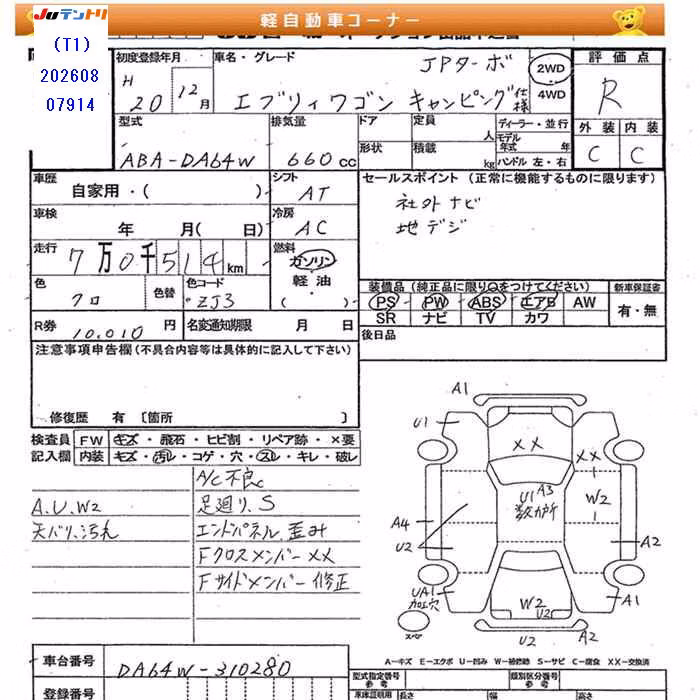 Juテントリ
軽自動車コーナー
(T1)
202608
07914
初度登録年月
H
20 12月
車名・グレード
JPターボ
エブリィワゴン キャンピング仕様
2WD
4WD
評価点
R
外装 内装
C C
型式
ABA-DA64W
排気量
660cc
ドア
定員
人
ディーラー・並行
モデル年式 年
形状
積載
kg
ハンドル 左・右
車歴
自家用・( )
シフト
AT
セールスポイント (正常に機能するものに限ります)
社外ナビ
地デジ
車検
年 月( 日)
冷房
AC
走行
7万0千514km
燃料
ガソリン
軽油
( )
色
クロ
色替
色コード
ZJ3
装備品 (純正品に限り○をつけてください)
新車保証書
PS PW ABS エアB AW
SR ナビ TV カワ
有・無
R券
10,010円
名変通知期限 月 日
後日品
注意事項申告欄 (不具合内容等は具体的に記入して下さい)
修復歴 有 〔箇所 〕
検査員
記入欄
FW キズ・飛石・ヒビ割・リペア跡・×要
内装 キズ・汚れ・コゲ・穴・スレ・キレ・破レ
A/C不良
A.U.W2
足廻り.S
天バリ.汚れ
エンドパネル.歪み
Fクロスメンバー××
Fサイドメンバー修正
A1
U1
××
××
U1 A3
数カ所
W2
A4
U2
A2
UA1
加工穴
W2
U2
A1
スペア
U2
A2
A-キズ E-エクボ U-凹み W-補修跡 S-サビ C-腐食 XX-交換済
車台番号
DA64W-310280
登録番号
型式指定番号
参考
類別区分番号
参考
車体証明用
長さ
幅
高さ